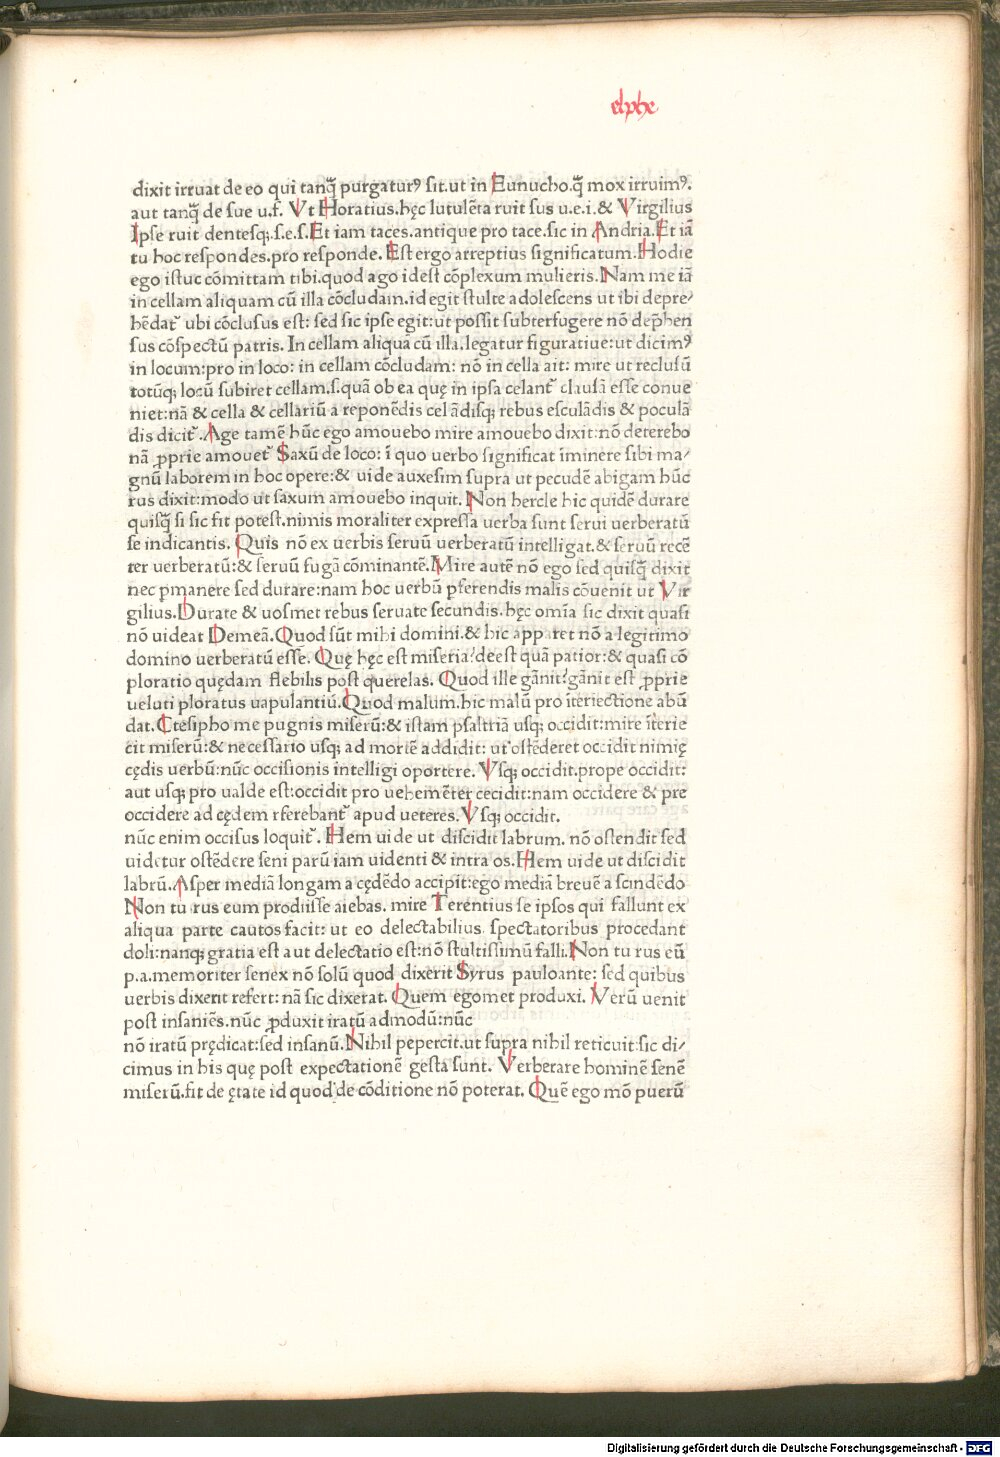 elphe
dixit irruat de eo qui tanq̃ purgaturꝰ sit.ut in Eunucho.q̃ mox irruimꝰ.
aut tanq̃ de sue u.f. Vt Horatius.hęc lutulẽta ruit sus u.e.i.& Virgilius
Ipse ruit dentesqꝫ.s.e.s.Et iam taces.antique pro tace.sic in Andria.Et iã
tu hoc respondes.pro responde. Est ergo arreptius significatum.Hodie
ego istuc cõmittam tibi.quod ago idest cõplexum mulieris.Nam me iã
in cellam aliquam cũ illa cõcludam.id egit stulte adolescens ut ibi depre/
hẽdat᷑ ubi cõclusus est: sed sic ipse egit:ut possit subterfugere nõ dep̃hen
sus cõspectũ patris. In cellam aliquã cũ illa.legatur figuratiue:ut dicimꝰ
in locum:pro in loco: in cellam cõcludam: nõ in cella ait: mire ut reclusũ
totũqꝫ locũ subiret cellam.s.quã ob ea quę in ipsa celant᷑ clausã esse conue
niet:nã & cella & cellariũ a reponẽdis cel ãdisqꝫ rebus esculãdis & poculã
dis dicit᷑.Age tamẽ hũc ego amouebo mire amouebo dixit:nõ deterebo
nã ꝓprie amouet᷑ Saxũ de loco: ĩ quo uerbo significat ĩminere sibi ma/
gnũ laborem in hoc opere:& uide auxesim supra ut pecudẽ abigam hũc
rus dixit:modo ut saxum amouebo inquit. Non hercle hic quidẽ durare
quisq̃ si sic fit potest.nimis moraliter expressa uerba sunt serui uerberatũ
se indicantis. Quis nõ ex uerbis seruũ uerberatũ intelligat.& seruũ recẽ
ter uerberatũ:& seruũ fugã cõminantẽ.Mire autẽ nõ ego sed quisq̃ dixit
nec ꝑmanere sed durare:nam hoc uerbũ ꝑferendis malis cõuenit ut Vir
gilius.Durate & uosmet rebus seruate secundis.hęc omĩa sic dixit quasi
nõ uideat Demeã.Quod sũt mihi domini.& hic apparet nõ a legitimo
domino uerberatũ esse. Quę hęc est miseria?deest quã patior:& quasi cõ
ploratio quędam flebilis post querelas. Quod ille gãnit?gãnit est ꝓprie
ueluti ploratus uapulantiũ.Quod malum.hic malũ pro ĩteriectione abũ
dat.Ctesipho me pugnis miserũ:& istam psaltriã usqꝫ occidit:mire ĩterie
cit miserũ:& necessario usqꝫ ad mortẽ addidit: ut ostẽderet occidit nimię
cędis uerbũ:nũc occisionis intelligi oportere. Vsqꝫ occidit.prope occidit:
aut usqꝫ pro ualde est:occidit pro uehemẽter cecidit:nam occidere & pre
occidere ad cędem rferebant᷑ apud ueteres.Vsqꝫ occidit.
nũc enim occisus loquit᷑. Hem uide ut discidit labrum. nõ ostendit sed
uidetur ostẽdere seni parũ iam uidenti & intra os.Hem uide ut discidit
labrũ.Asper mediã longam a cędẽdo accipit:ego mediã breuẽ a scindẽdo
Non tu rus eum prodiisse aiebas. mire Terentius se ipsos qui fallunt ex
aliqua parte cautos facit: ut eo delectabilius spectatoribus procedant
doli:nanqꝫ gratia est aut delectatio est:nõ stultissimũ falli.Non tu rus eũ
p.a.memoriter senex nõ solũ quod dixerit Syrus pauloante: sed quibus
uerbis dixerit refert: nã sic dixerat. Quem egomet produxi. Verũ uenit
post insaniẽs.nũc ꝓduxit iratũ admodũ:nũc
nõ iratũ prędicat:sed insanũ.Nihil pepercit.ut supra nihil reticuit:sic di/
cimus in his quę post expectationẽ gesta sunt. Verberare hominẽ senẽ
miserũ.fit de ętate id quod de cõditione nõ poterat. Quẽ ego mõ puerũ
Digitalisierung gefördert durch die Deutsche Forschungsgemeinschaft - DFG